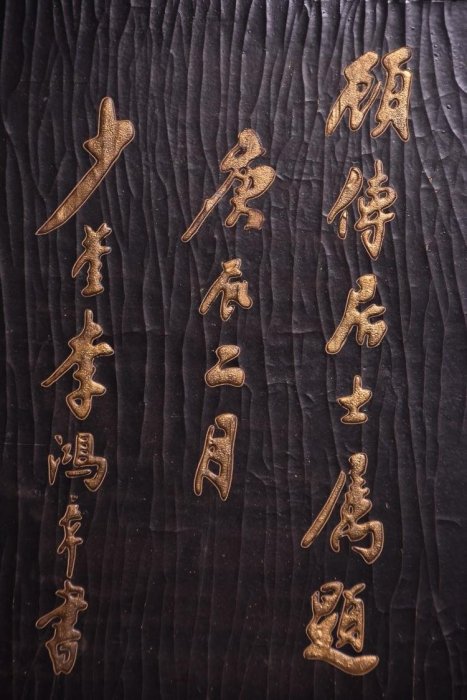 碩傳居士屬題
庚辰二月
少荃李鴻章書